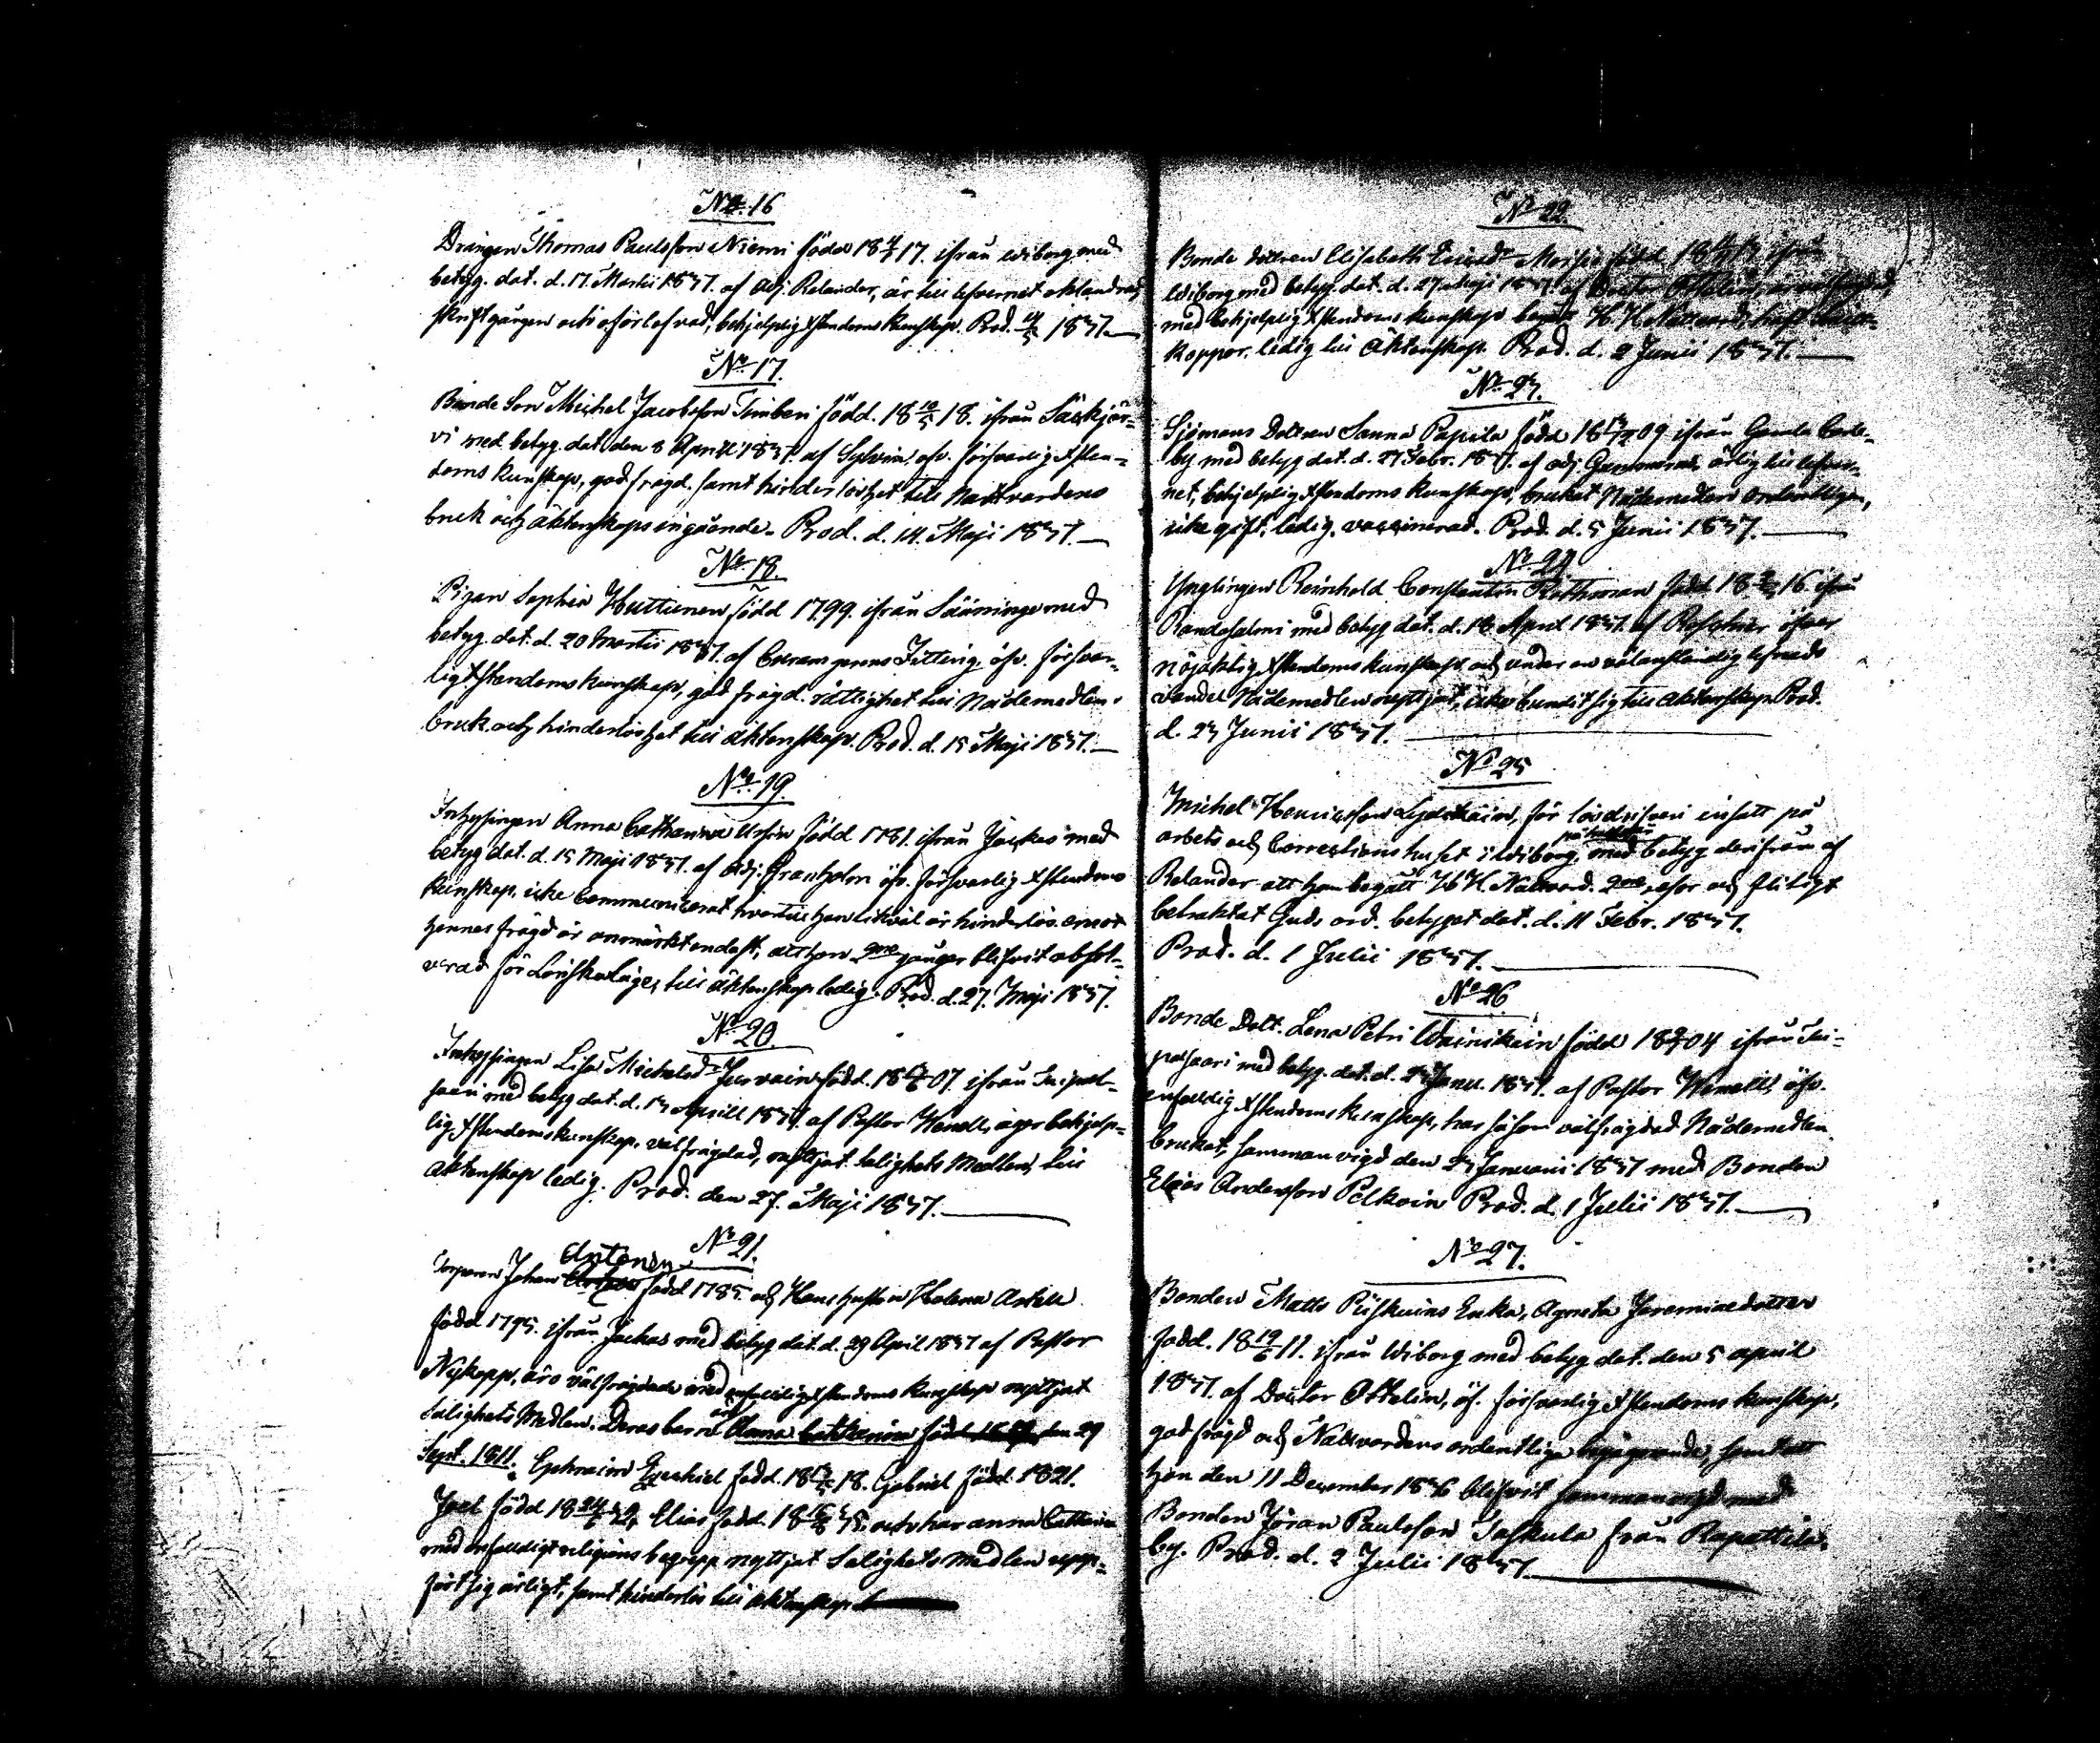 No 16
Drängen Thomas Paulsson Niemi född 18 17. ifrån Wiborg med
betyg. dat. d. 17. Martii 1837. af Adj. Relander, är till lefvernet oklandrad,
skriftgången och oförlofvad, behjelplig Xstendoms kunskap. Prod. 1837.
No 17.
Bonde Son Michel Jacobsson Timberi född. 18 18. ifrån Säckjär-
vi med betyg. dat. den 8 April 1837. af öfv. försvarlig Xsten-
doms kunskap, god frägd, samt hinderlöshet till Nattvardens
bruk och äktenskaps ingående. Prod. d. 14. Maji 1837.
No 18.
Pigan Sophia Huttunen född 1799. ifrån Sääminge med
betyg. dat. d. 20 Martii 1837. af öfv. försvar-
lig Xstendoms kunskap, god frägd. rättighet till Nådemedlens
bruk och hinderlöshet till äktenskap. Prod. d. 15 Maji 1837.
No 19.
Inhysingen Anna Catharina Ursin född 1781. ifrån Jackas med
betyg dat. d. 15 Maji 1837. af Adj. Granholm öfv. försvarlig Xstendoms
kunskap, icke Communicerat hvartill hon likväl är hinderlös. emot
hennes frägd är anmärkt endast, att hon gånger blifvit absol-
verad för Lönskaläge, till äktenskap ledig. Prod. d. 27. Maji 1837.
No 20.
Inhysingen Lisa Michelsd:r född. 18 07. ifrån Taipal-
saari med betyg dat. d. 13 Aprill 1837. af Pastor Wenell, äger behjelp-
lig Xstendoms kunskap. välfrägdad, nyttjat Salighets Medlen, till
äktenskap ledig. Prod. den 27. Maji 1837.
No 21.
Antonen
Torparen Johan född 1785. och Hans hustru Helena
född 1795. ifrån Jackas med betyg dat. d. 29 April 1837 af Pastor
Nykopp, äro välfrägdade med enfaldig Xstendoms kunskap nyttjat
Salighets Medlen. Deras barn Anna Catharina född den 29
Sept. 1811. Ephraim Ezechiel född. 18 18. Gabriel född. 1821.
Joel född 18 Elias född. 18 och har Anna Catharina
med enfaldigt religions begrepp nyttjat Salighets medlen upp-
fört sig ärligt, samt hinderlös till äktenskap
No 22.
Bonde dottren Elisabeth född 18 ifrån
Wiborg med betyg. dat. d. 27 Maji 1837. af Doctor Ottelin,
med behjelplig Xstendoms kunskap H. H. Nattvard, haft
koppor. ledig till Äktenskap. Prod. d. 2 Junii 1837.
No 23.
Sjömans Dottren Sanna Papila född 18 09 ifrån Gamla Carle-
by med betyg dat. d. 27 Febr. 1837. af Adj. ärlig till lefver-
net, behjelplig Xstendoms kunskap, brukat Nådemedlen ordentligen,
icke gift. ledig. vaccinerad. Prod. d. 5 Junii 1837.
No 24
Ynglingen Reinhold Constantin Rothman född 18 16 ifrån
Randasalmi med betyg dat. d. 18 April 1837. af öfver
nöjaktig Xstendoms kunskap och under en välanständig lefnads
vandel Nådemedlen nyttjat, icke bundit sig till äktenskap Prod.
d. 23 Junii 1837.
No 25
Michel Henricsson för lösdrifveri insatt på
arbets och Corrections huset i Wiborg, med betyg derifrån af
Relander att han begått H. H. Nattvard. 2ne resor och flitigt
betraktat Guds ord. betyget dat. d. 11 Febr. 1837.
Prod. d. 1 Julii 1837.
No 26
Bonde Dott. Lena Petri Wainikain född 18 04 ifrån Tai-
palsaari med betyg. dat. d. 23 Janu. 1837. af Pastor Wenell, öfv.
enfaldig Xstendoms kunskap, har såsom välfrägdad Nådemedlen
brukat, samman vigd den 23 Januarii 1837 med Bonden
Elias Andersson Pelkoin Prod. d. 1 Julii 1837.
No 27.
Bonden Matts Enka, Agneta Jeremiaedotter
född. 18 19/6 11. ifrån Wiborg med betyg dat. den 5 April
1837. af Doctor Ottelin, öf. försvarlig Xstendoms kunskap,
god frägd och Nattvardens ordentliga begående, samt att
hon den 11 December 1836 blifvit sammanvigd med
Bonden Jöran Paulsson Taskula från Rapattila
by. Prod. d. 2 Julii 1837.